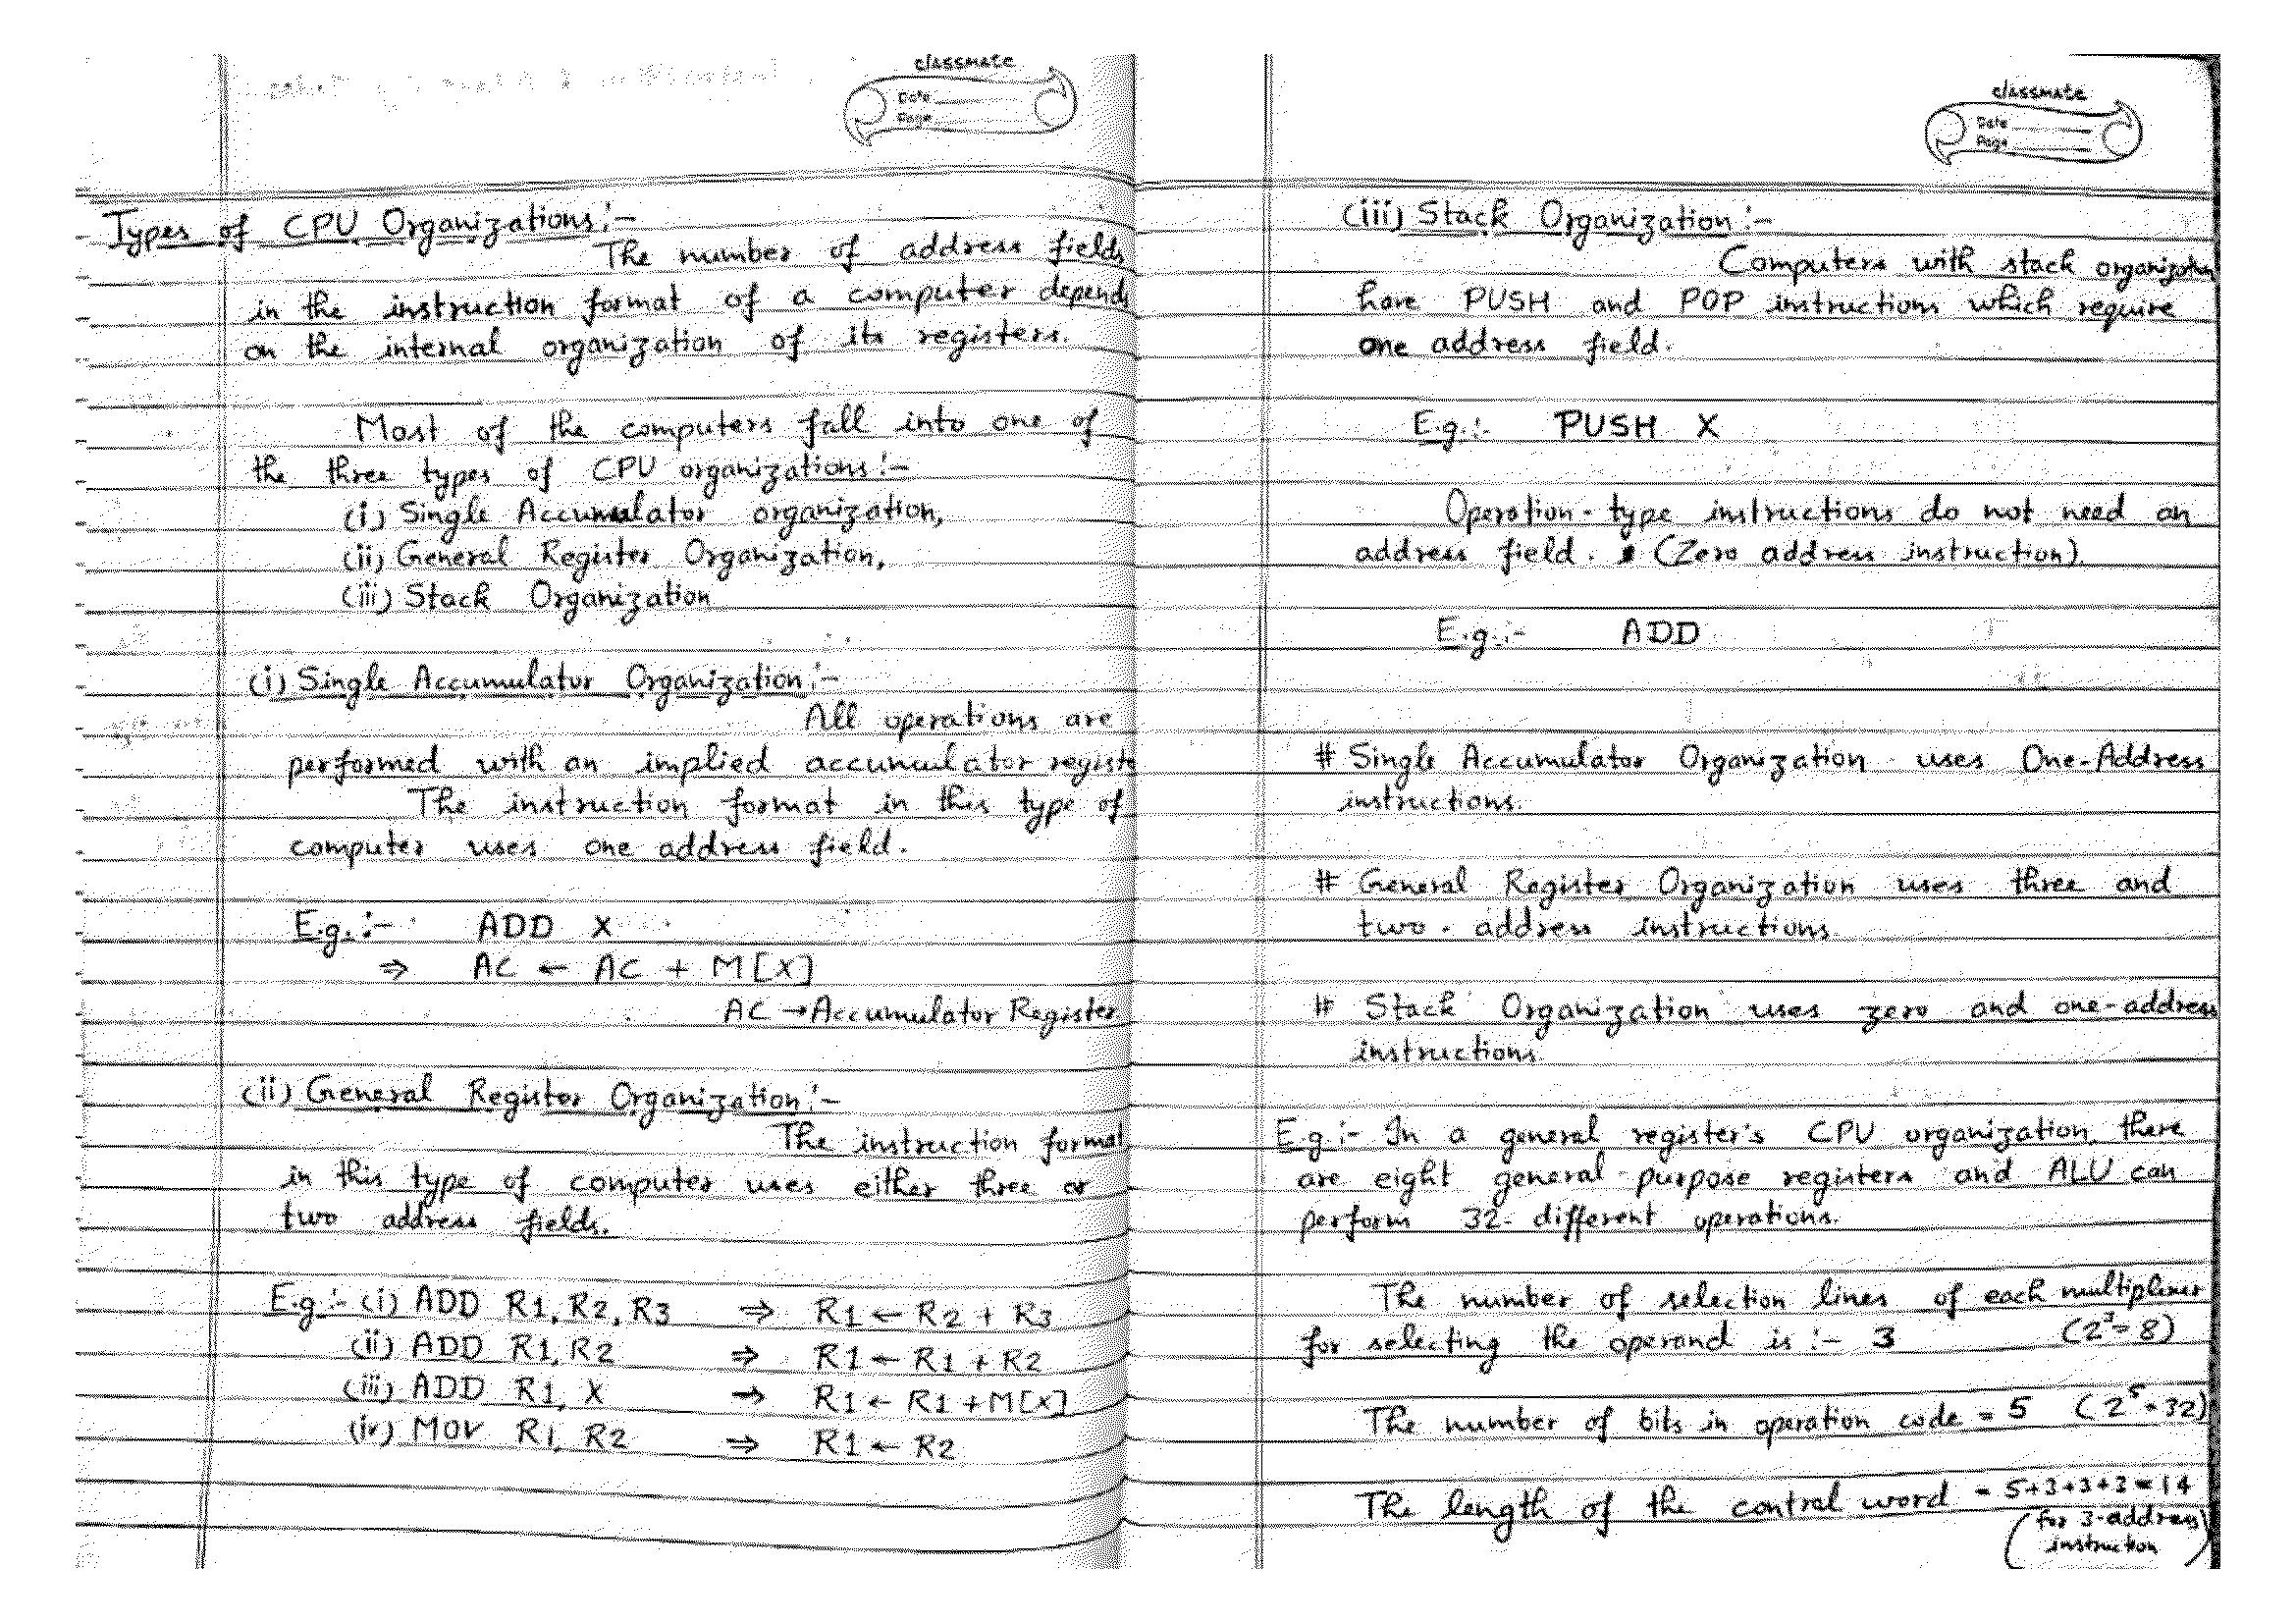 classmate
Date
Page
Types of CPU Organizations:-
The number of address fields
in the instruction format of a computer depends
on the internal organization of its registers.
Most of the computers fall into one of
the three types of CPU organizations:-
(i) Single Accumulator organization,
(ii) General Register Organization,
(iii) Stack Organization
(i) Single Accumulator Organization:-
All operations are
performed with an implied accumulator registe
The instruction format in this type of
computer uses one address field.
E.g.:- ADD X
⇒ AC ← AC + M[X]
AC → Accumulator Register
(ii) General Register Organization:-
The instruction format
in this type of computer uses either three or
two address fields.
E.g:- (i) ADD R1, R2, R3 ⇒ R1 ← R2 + R3
(ii) ADD R1, R2 ⇒ R1 ← R1 + R2
(iii) ADD R1, X → R1 ← R1 + M[X]
(iv) MOV R1, R2 ⇒ R1 ← R2
classmate
Date
Page
(iii) Stack Organization:-
Computers with stack organization
have PUSH and POP instructions which require
one address field.
E.g.:- PUSH X
Operation-type instructions do not need an
address field. (Zero address instruction).
E.g.:- ADD
# Single Accumulator Organization uses One-Address
instructions.
# General Register Organization uses three and
two-address instructions.
# Stack Organization uses zero and one-address
instructions.
E.g:- In a general register's CPU organization, there
are eight general-purpose registers and ALU can
perform 32-different operations.
The number of selection lines of each multiplexer
for selecting the operand is :- 3 (2³=8)
The number of bits in operation code = 5 (2⁵=32)
The length of the control word = 5+3+3+3=14
(for 3-address
instruction)